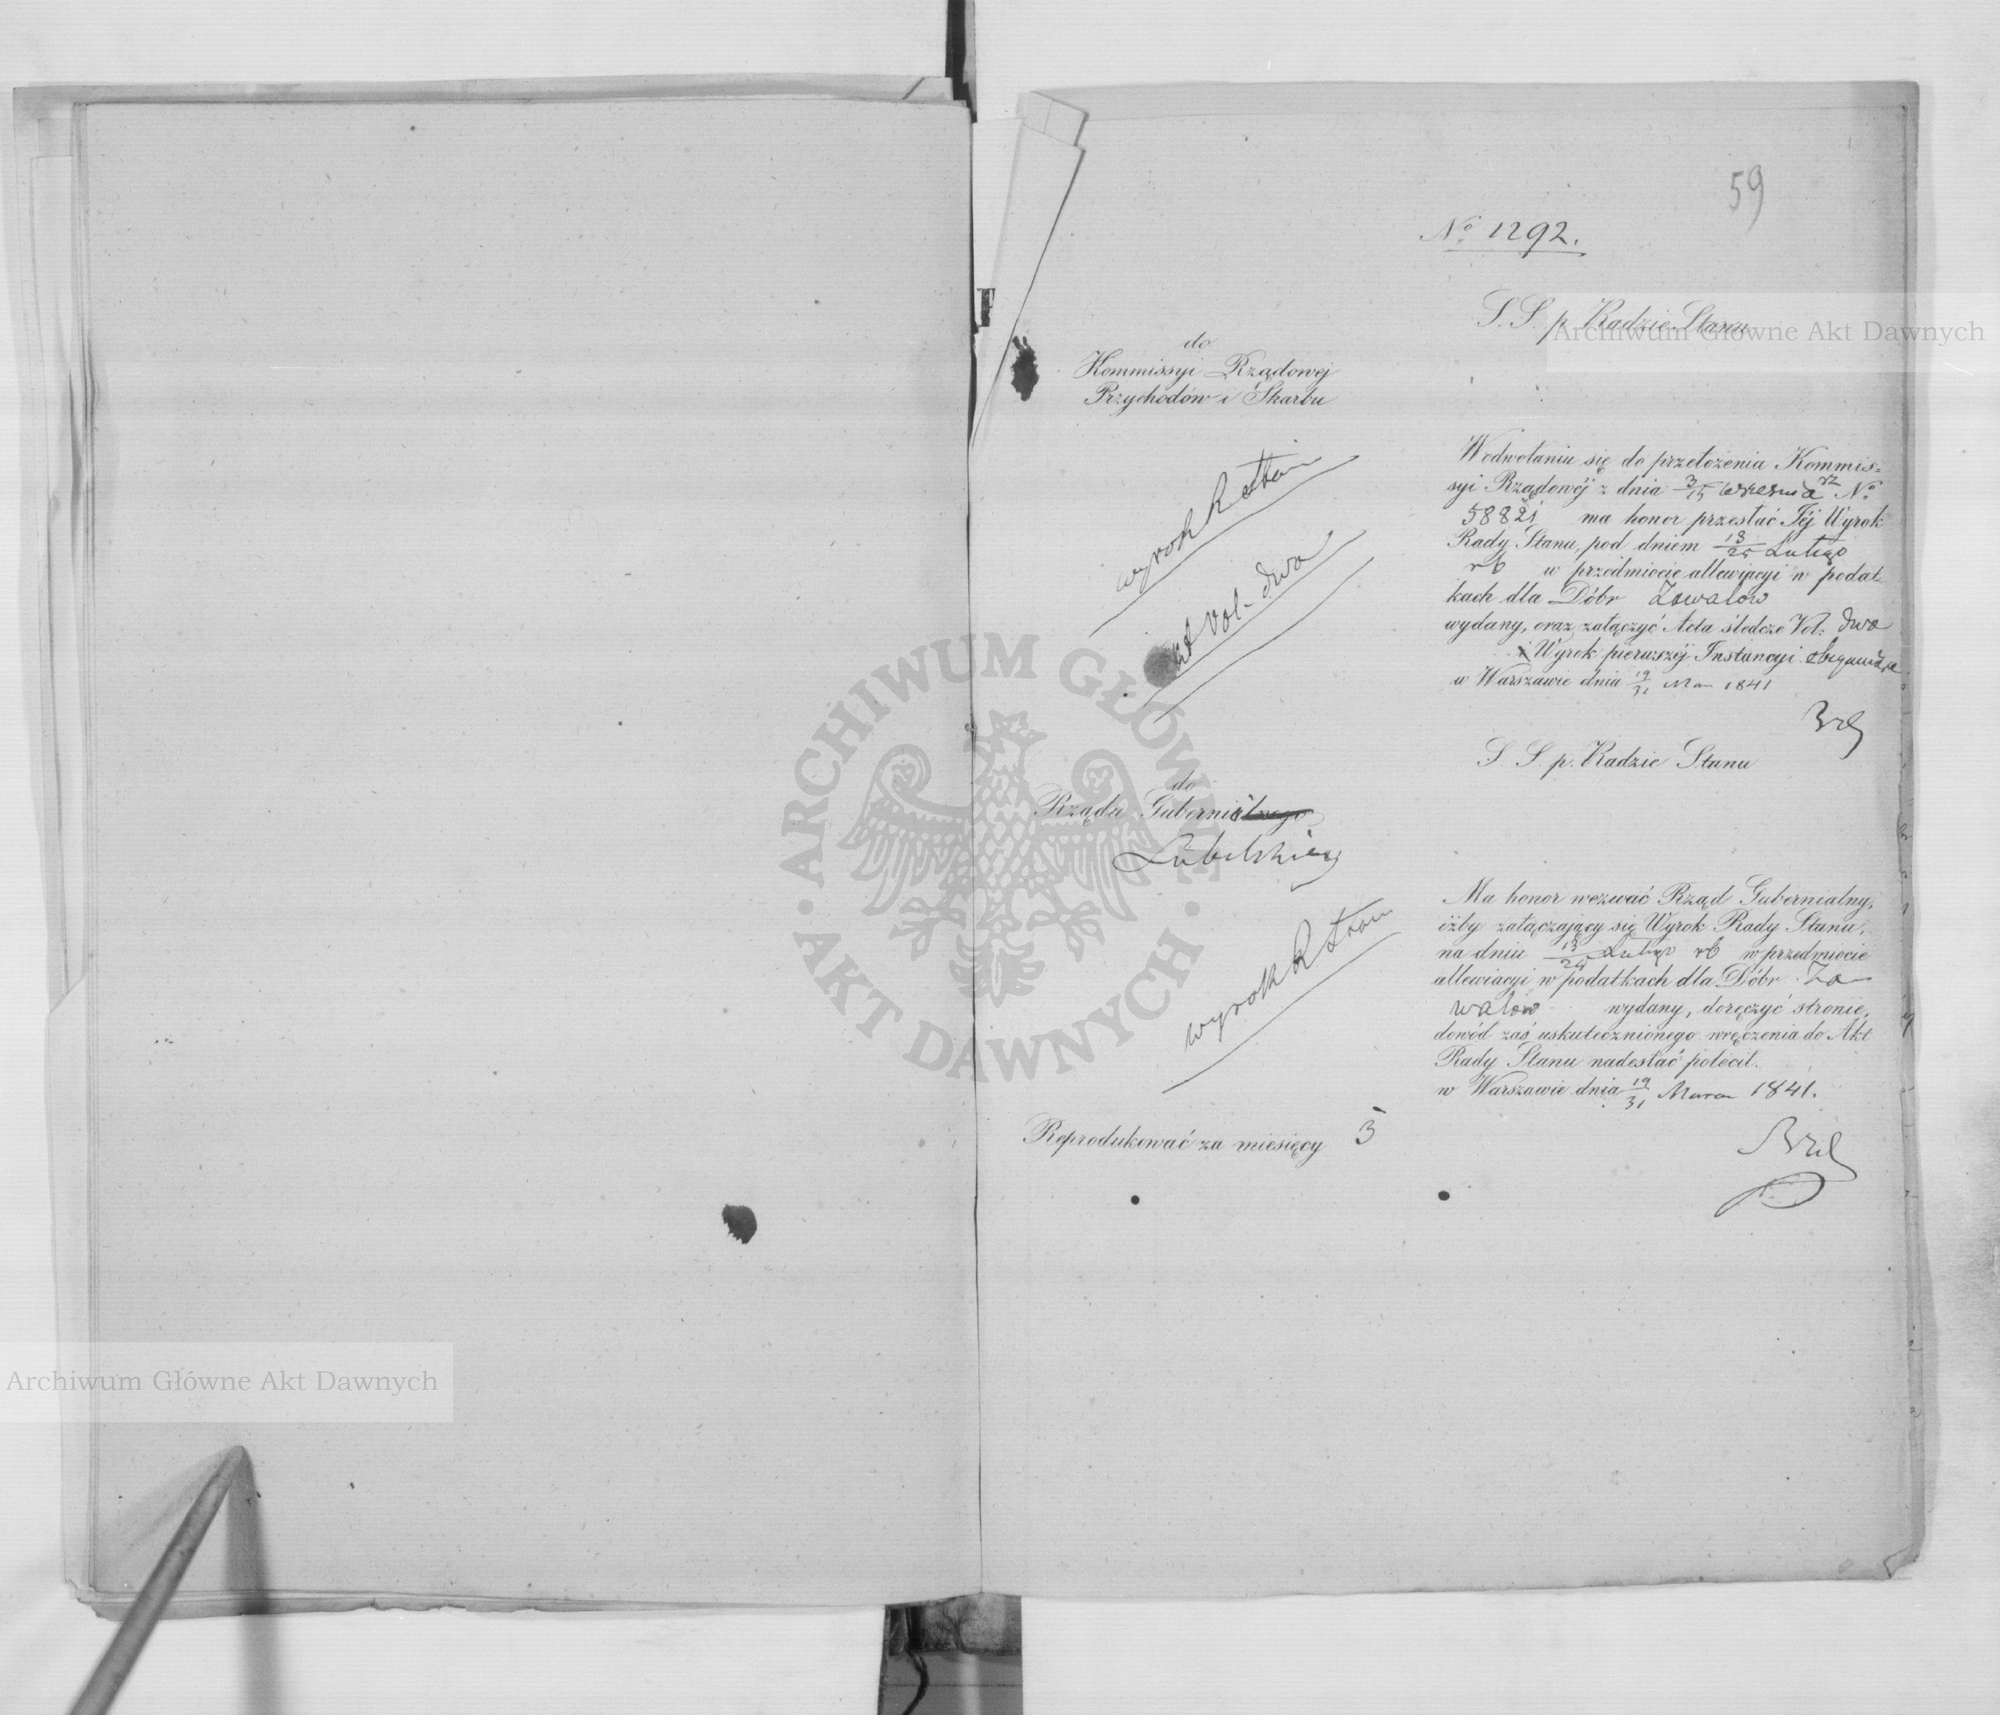 59
No 1292.
S. S. p. Radzie Stanu
do
Kommissyi Rządowej
Przychodów i Skarbu
W odwołaniu się do przełożenia Kommis=
syi Rządowéj z dnia 3/15 Września No
58821 ma honor przesłać Jéj Wyrok
Rady Stanu, pod dniem 13/25 Lutego
rb w przedmiocie allewijacyi w podat-
kach dla Dóbr Zawalów
wydany, oraz załączyć Acta śledcze Vol: dwa
i Wyrok pierwszéj Instancyi
w Warszawie dnia 19/31 Mar 1841
wyrok R Stanu
Vol. dwa
S. S. p. Radzie Stanu
do
Rządu Gubernialnego
Lubelskiego
Ma honor wezwać Rząd Gubernialny,
iżby załączający się Wyrok Rady Stanu,
na dniu 13/25 Lutego rb w przedmiocie
allewiacyi w podatkach dla Dóbr Za
walów wydany, doręczyć stronie,
dowód zaś uskutecznionego wręczenia do Akt
Rady Stanu nadesłać polecił.
w Warszawie dnia 19/31 Marca 1841.
wyrok R Stanu
Reprodukować za miesięcy 3
F
Archiwum Główne Akt Dawnych
Archiwum Główne Akt Dawnych
ARCHIWUM GŁÓWNE
AKT DAWNYCH